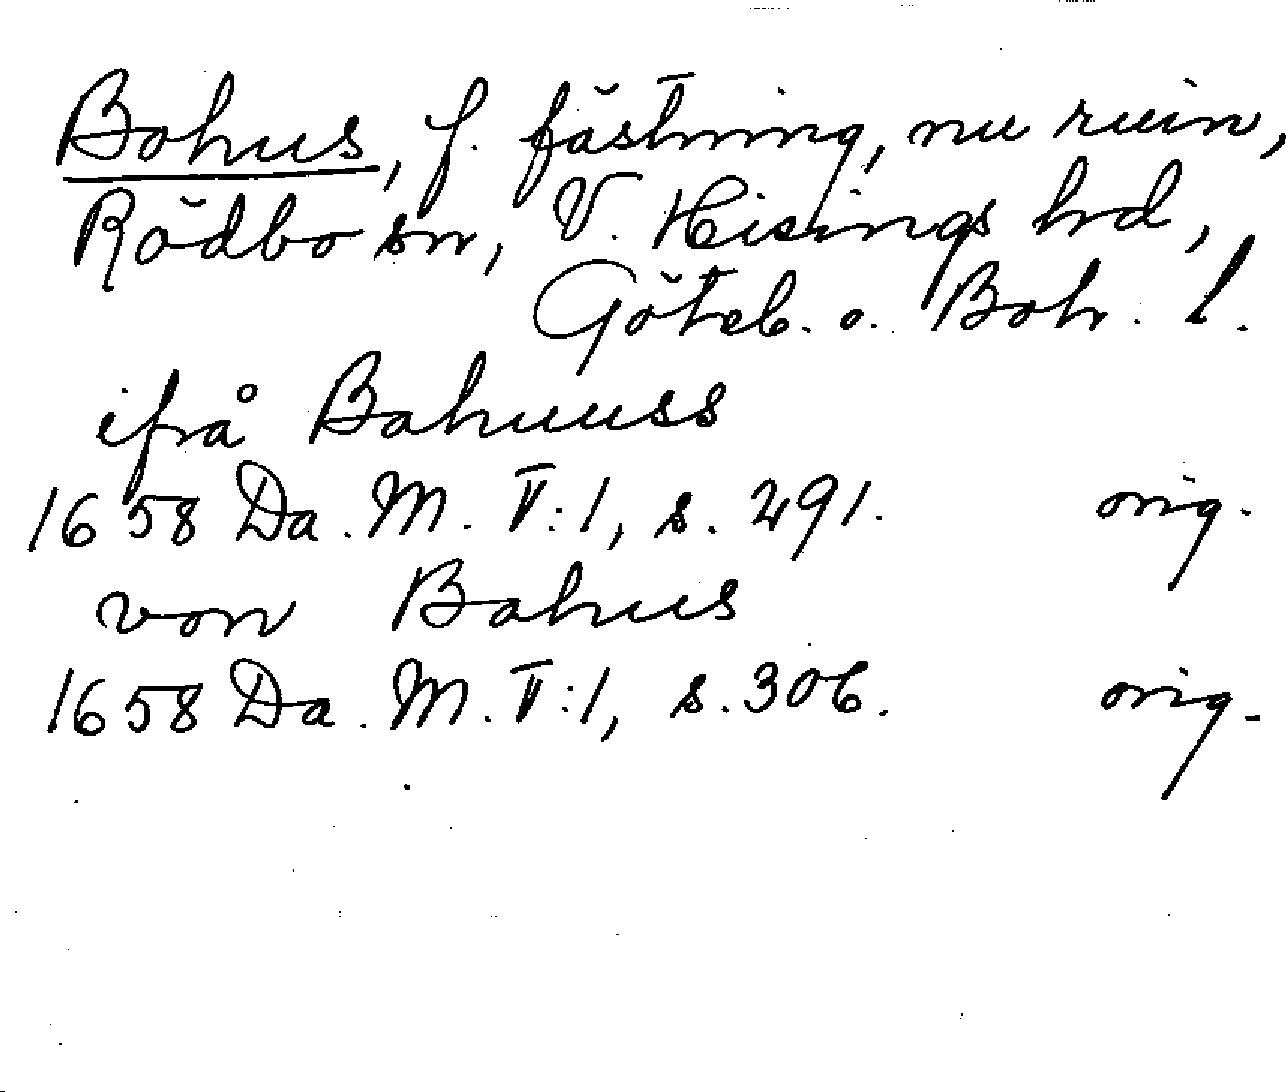 Bohus, f. fästning, nu ruin,
Rödbo sn, V. Hisings hd,
Göteb. o. Boh. l.
ifrå Bahuuss
1658 Da. M. V:1, s. 291. orig.
von Bahus
1658 Da. M. V:1, s. 306. orig.